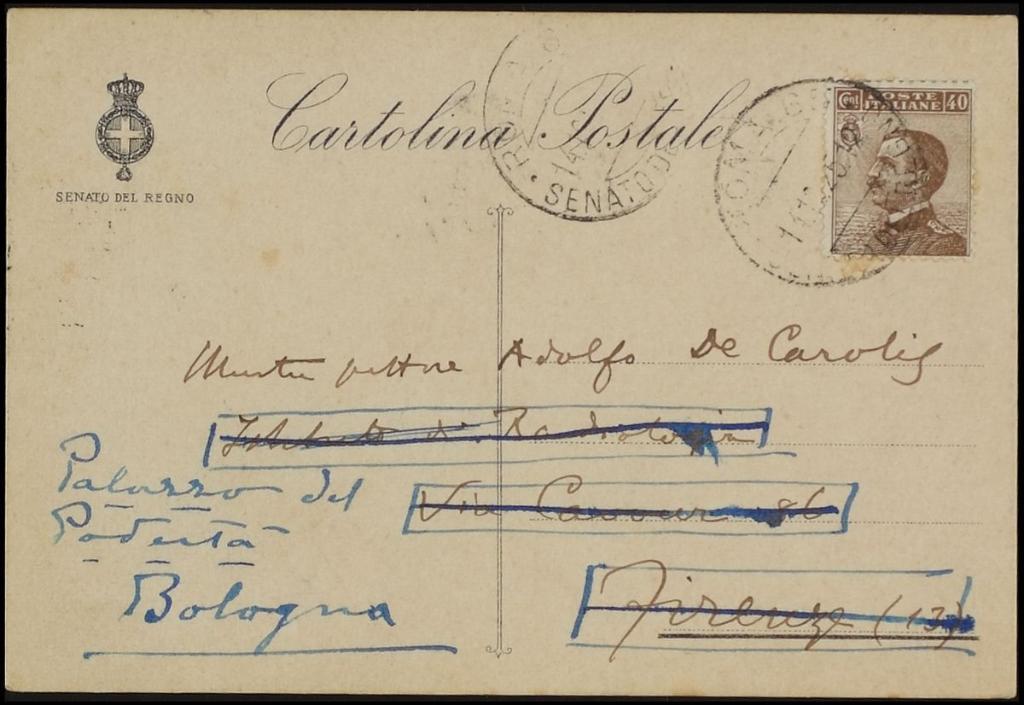 Cartolina Postale
SENATO DEL REGNO
SENATO DE
POSTE
ITALIANE
Cent 40
pittore Adolfo De Carolis
Istituto di Radiologia
Via Cavour 86
Firenze (13)
Palazzo del
Podestà
Bologna